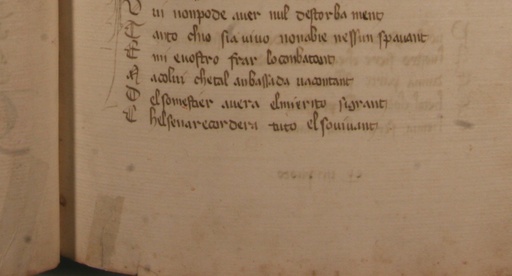 D in nonpode auer nul destorbament
T anto chio sia uiuo nonabie nessun spauant
E mi enostro frar loconbatant
A acolui chetal anbassida uacontant
D elsomestier auera elmierito sigrant
C helsenarecordera tuto elsouiuant